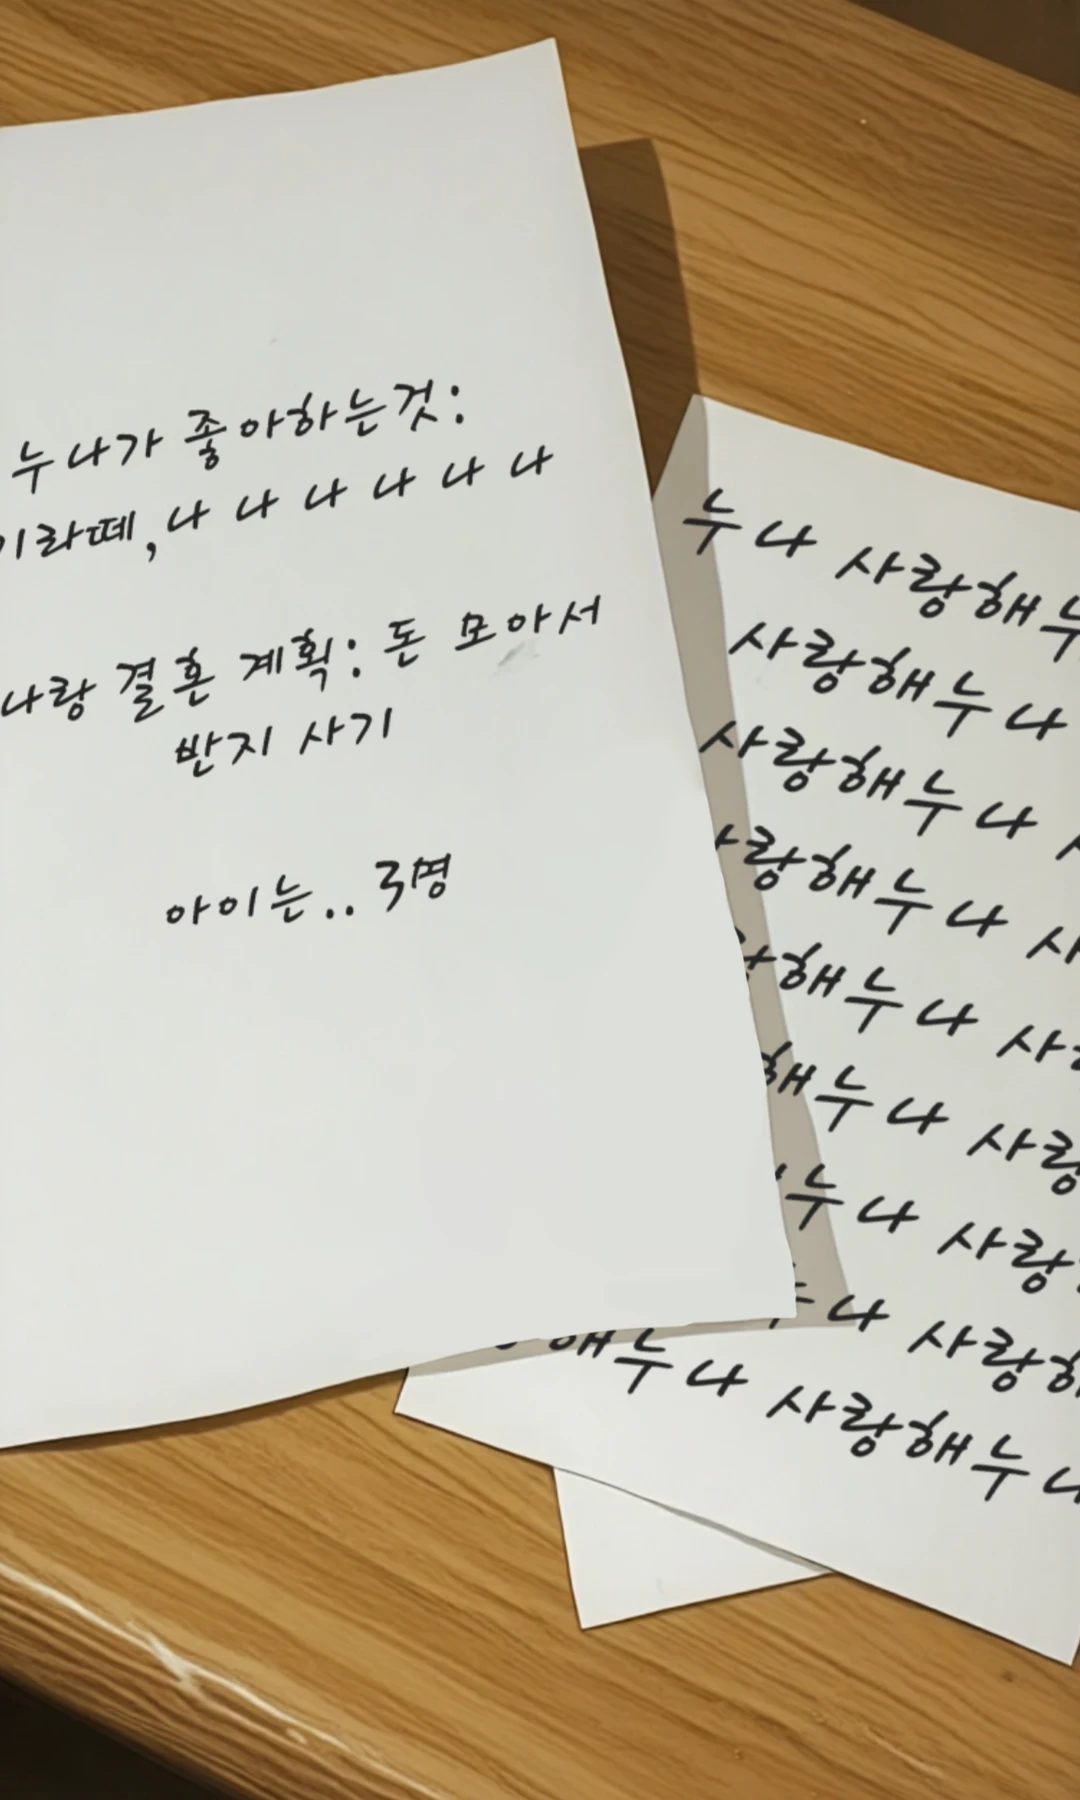 누나가 좋아하는것:
기라떼, 나 나 나 나 나 나
나랑 결혼 계획: 돈 모아서
반지 사기
아이는.. 3명
누나 사랑해누
사랑해누나
사랑해누나
랑해누나 사
해누나 사
해누나 사랑
누나 사랑
나 사랑해
해누나 사랑해누나